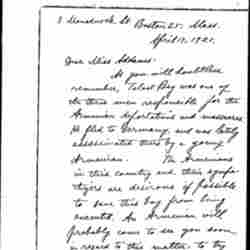 Boston 25. Mass.
April 17, 1921.
Dear Miss Addams:
As you will doubtless
remember, Talaat Bey was one of
the three men responsible for the
Armenian deportations and massacres.
He fled to Germany, and was lately
assassinated there by a young
Armenian. The Armenians
in this country and their sympa-
thizers are desirous if possible
to save this boy from being
executed. An Armenian will
probably come to see you soon
in regard to this matter, to try